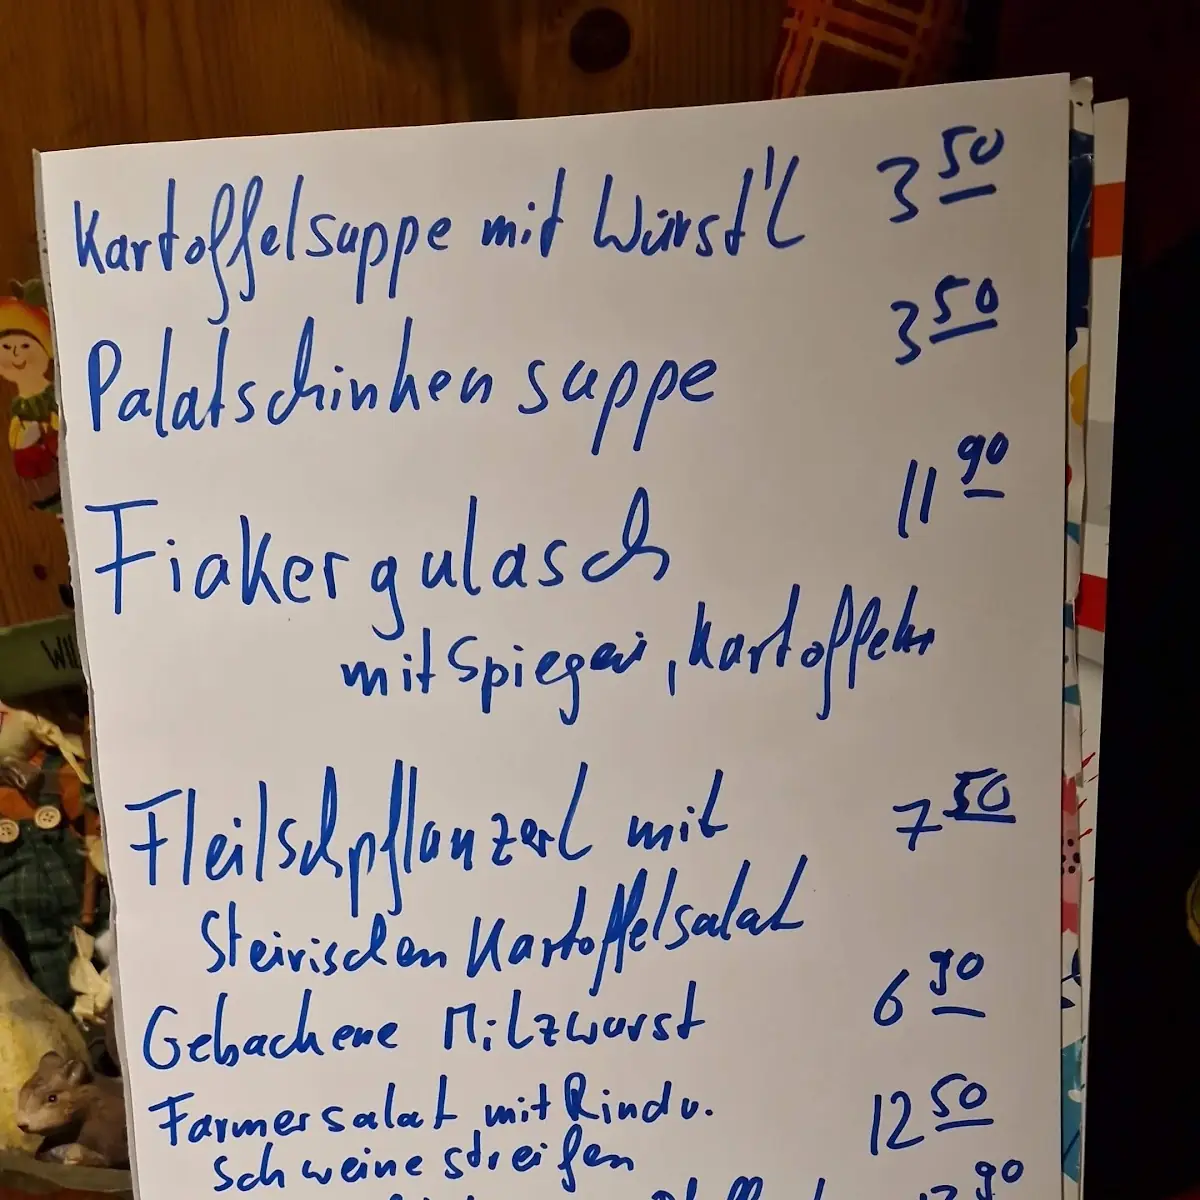 Kartoffelsuppe mit Würst'l 3 50
Palatschinken suppe 3 50
Fiakergulasch 11 90
mit Spiegelei, Kartoffeln
Fleischpflanzerl mit 7 50
Steirischen Kartoffelsalat
Gebackene Milzwurst 6 90
Farmersalat mit Rind u. 12 50
Schweinestreifen
90